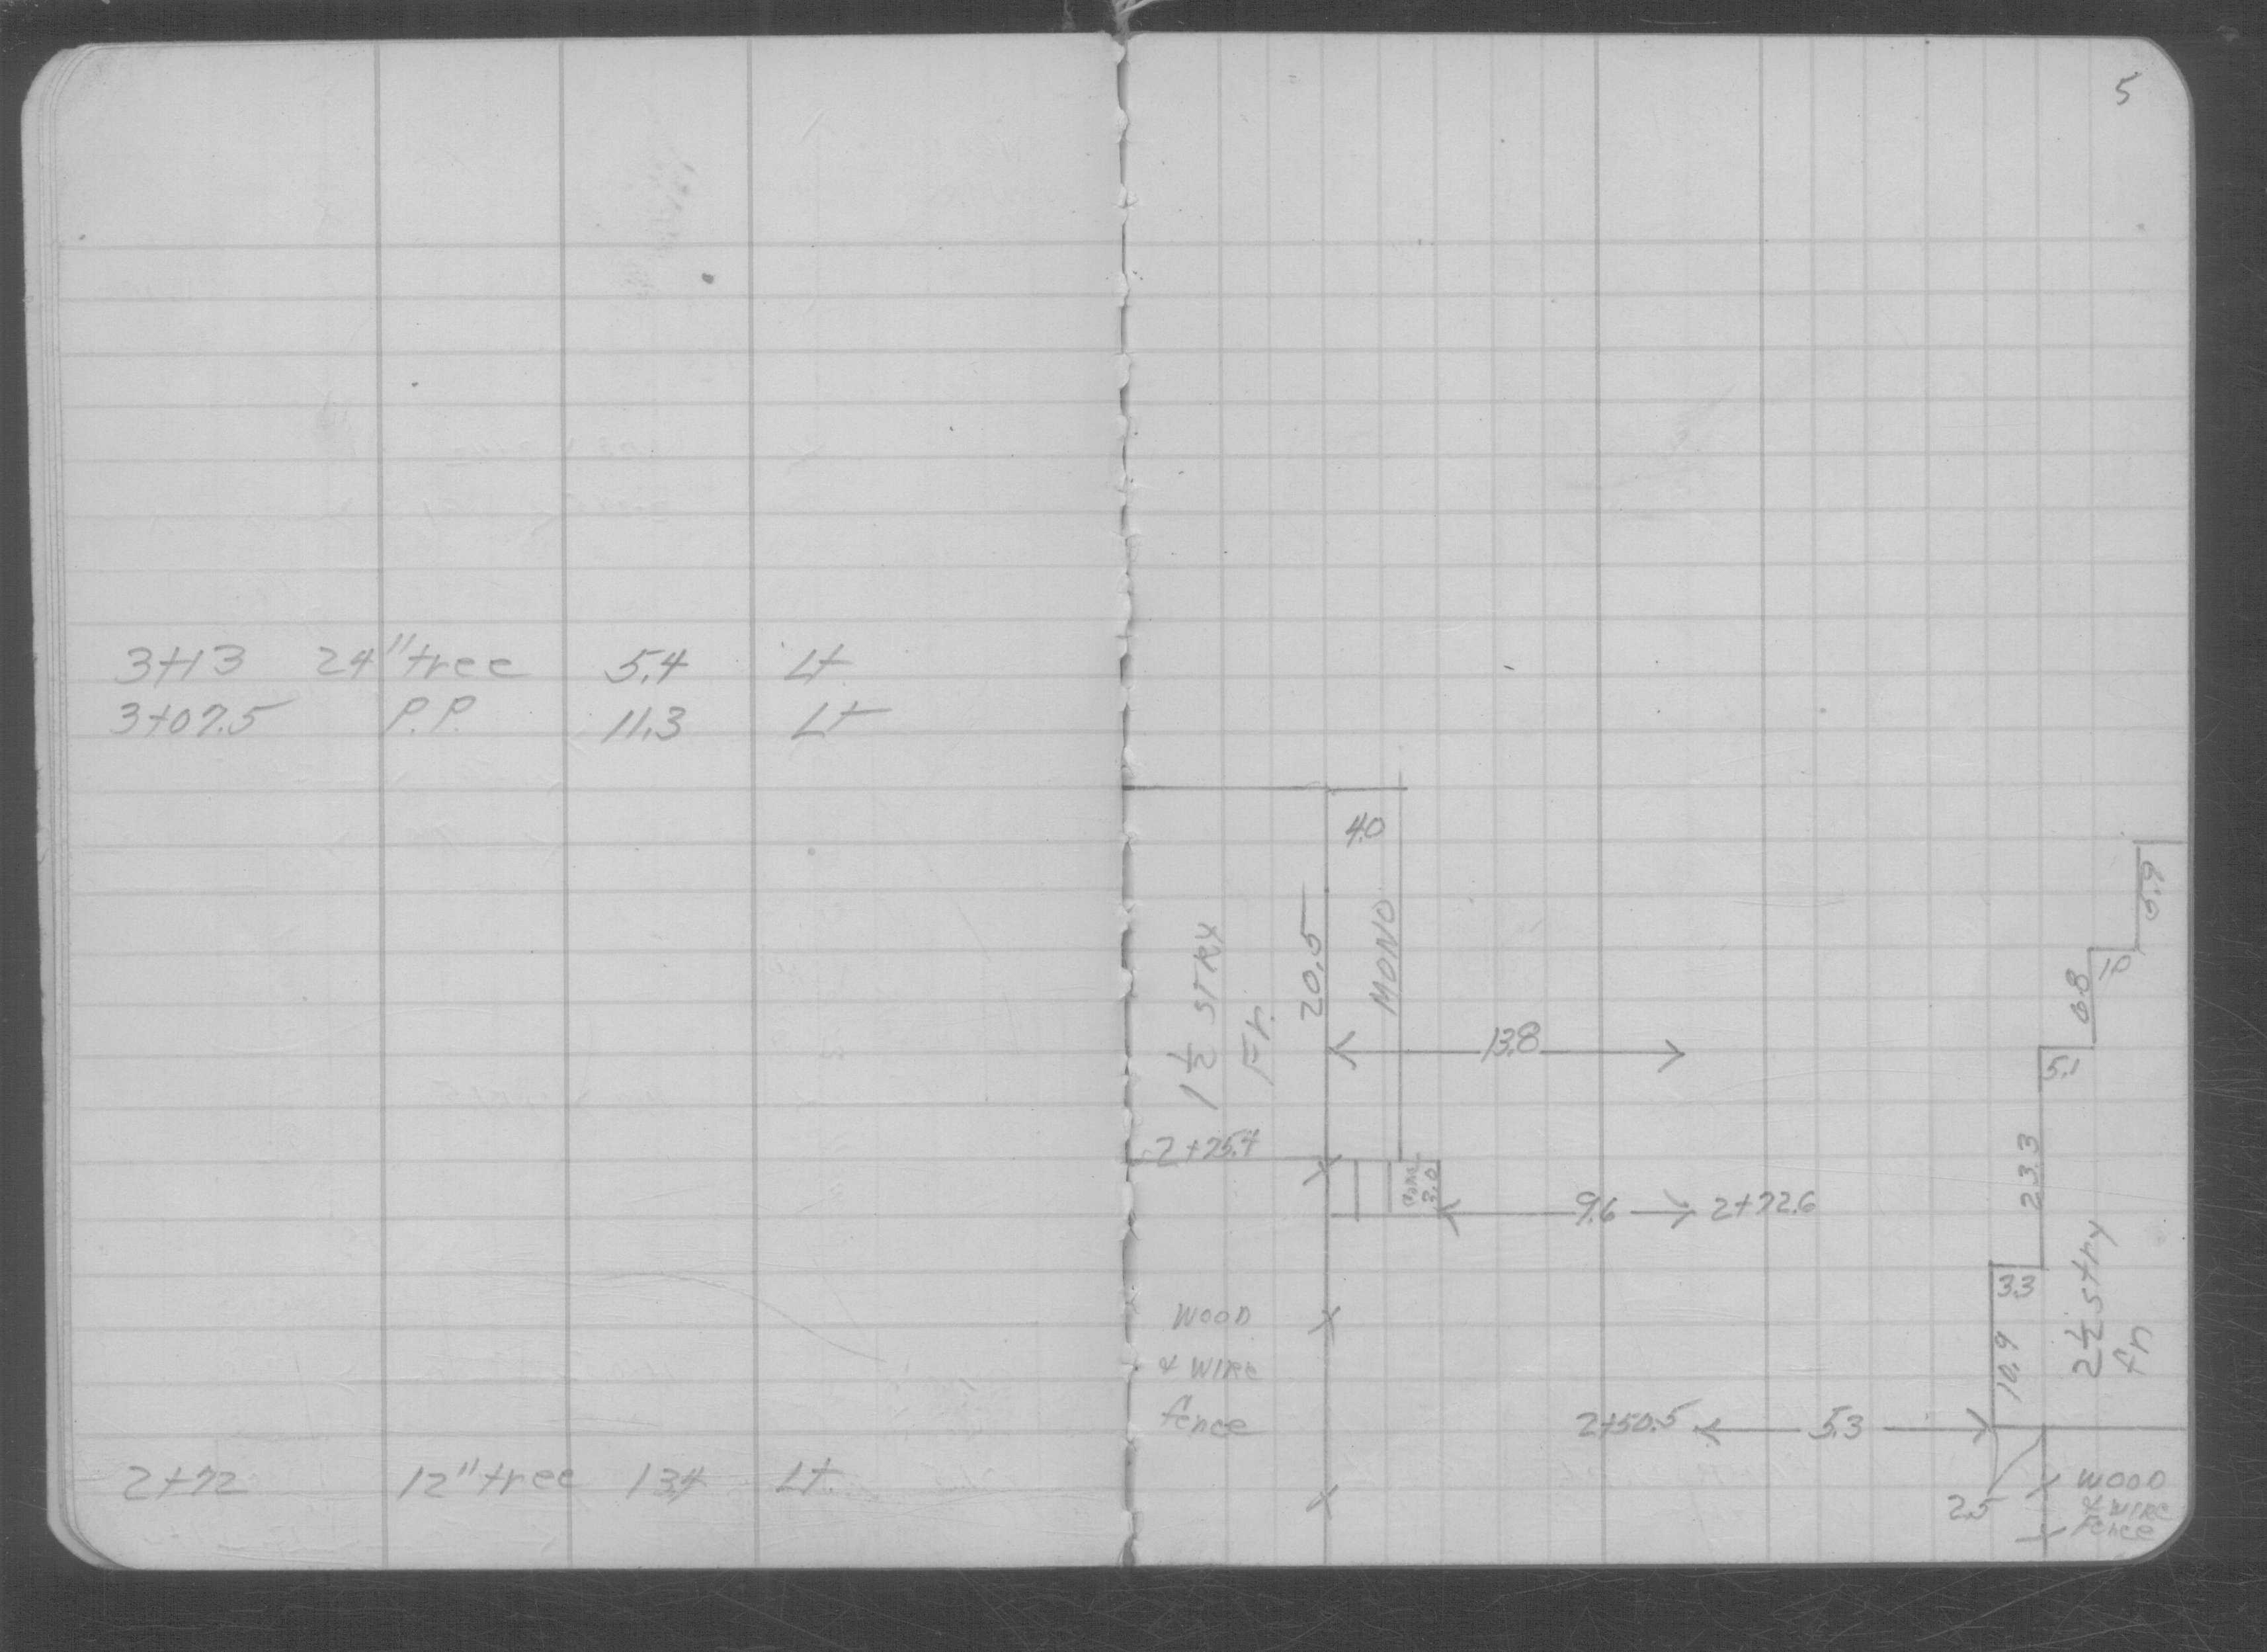 5
3+13 24" tree 5.4 Lt
3+07.5 P.P. 11.3 Lt
2+72 12" tree 13.4 Lt.
4.0
MONO
20.5
1 1/2 STRY
Fr.
13.8
2+75.4
3.0
9.6 2+72.6
WOOD
& WIRE
fence
5.9
10
6.8
5.1
23.3
3.3
10.9
2 1/2 stry
fr
2+50.5 5.3
2.5
WOOD
& WIRE
Fence